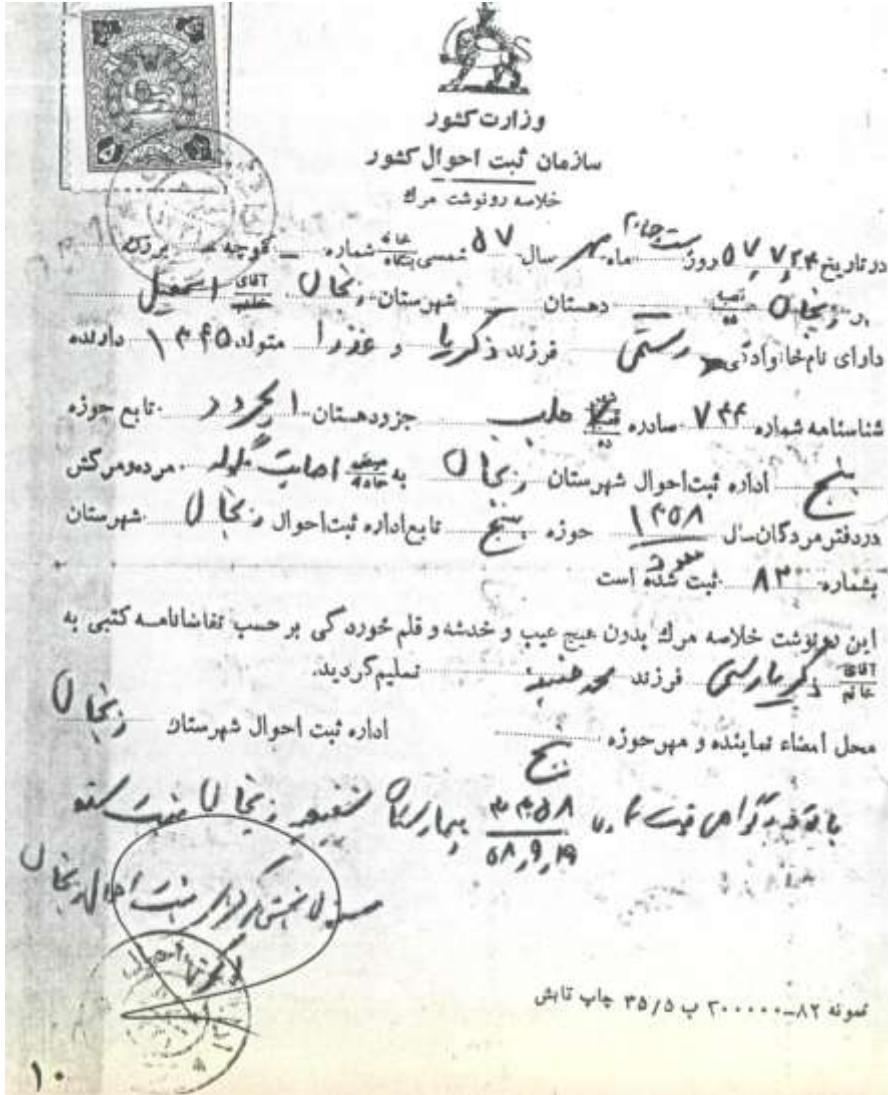 وزارت کشور
سازمان ثبت احوال کشور
خلاصه رونوشت مرگ
در تاریخ ۵۷٫۷٫۲۴ روز ماه مهر سال ۵۷ شمسی خانه شماره ــ کوچه ــ برزن
در زنجان قصبه ده ــ دهستان ــ شهرستان زنجان آقای اسمعیل
دارای نام خانوادگی رستمی فرزند ذکریا و عذرا متولد ۱۳۴۵ دارنده
شناسنامه شماره ۷۴۴ صادره حلب جزو دهستان ایجرود تابع حوزه
پنج اداره ثبت احوال شهرستان زنجان به اصابت گلوله مرده و مرگش
در دفتر مردگان سال ۱۳۵۸ حوزه پنج تابع اداره ثبت احوال زنجان شهرستان
بشماره ۸۳۰ ثبت شده است
این رونوشت خلاصه مرگ بدون هیچ عیب و خدشه و قلم خوردگی بر حسب تقاضانامه کتبی به
آقای خانم ذکریا رستمی فرزند محمد تسلیم گردید.
محل امضاء نماینده و مهر حوزه پنج اداره ثبت احوال شهرستان زنجان
گواهی فوت ۳۳۵۸ بیمارستان زنجان ثبت شده
۵۸٫۹٫۱۹
ثبت احوال زنجان
نمونه ۸۲ــ۲۰۰۰۰۰ ب ۳۵/۵ چاپ تابش
۱۰